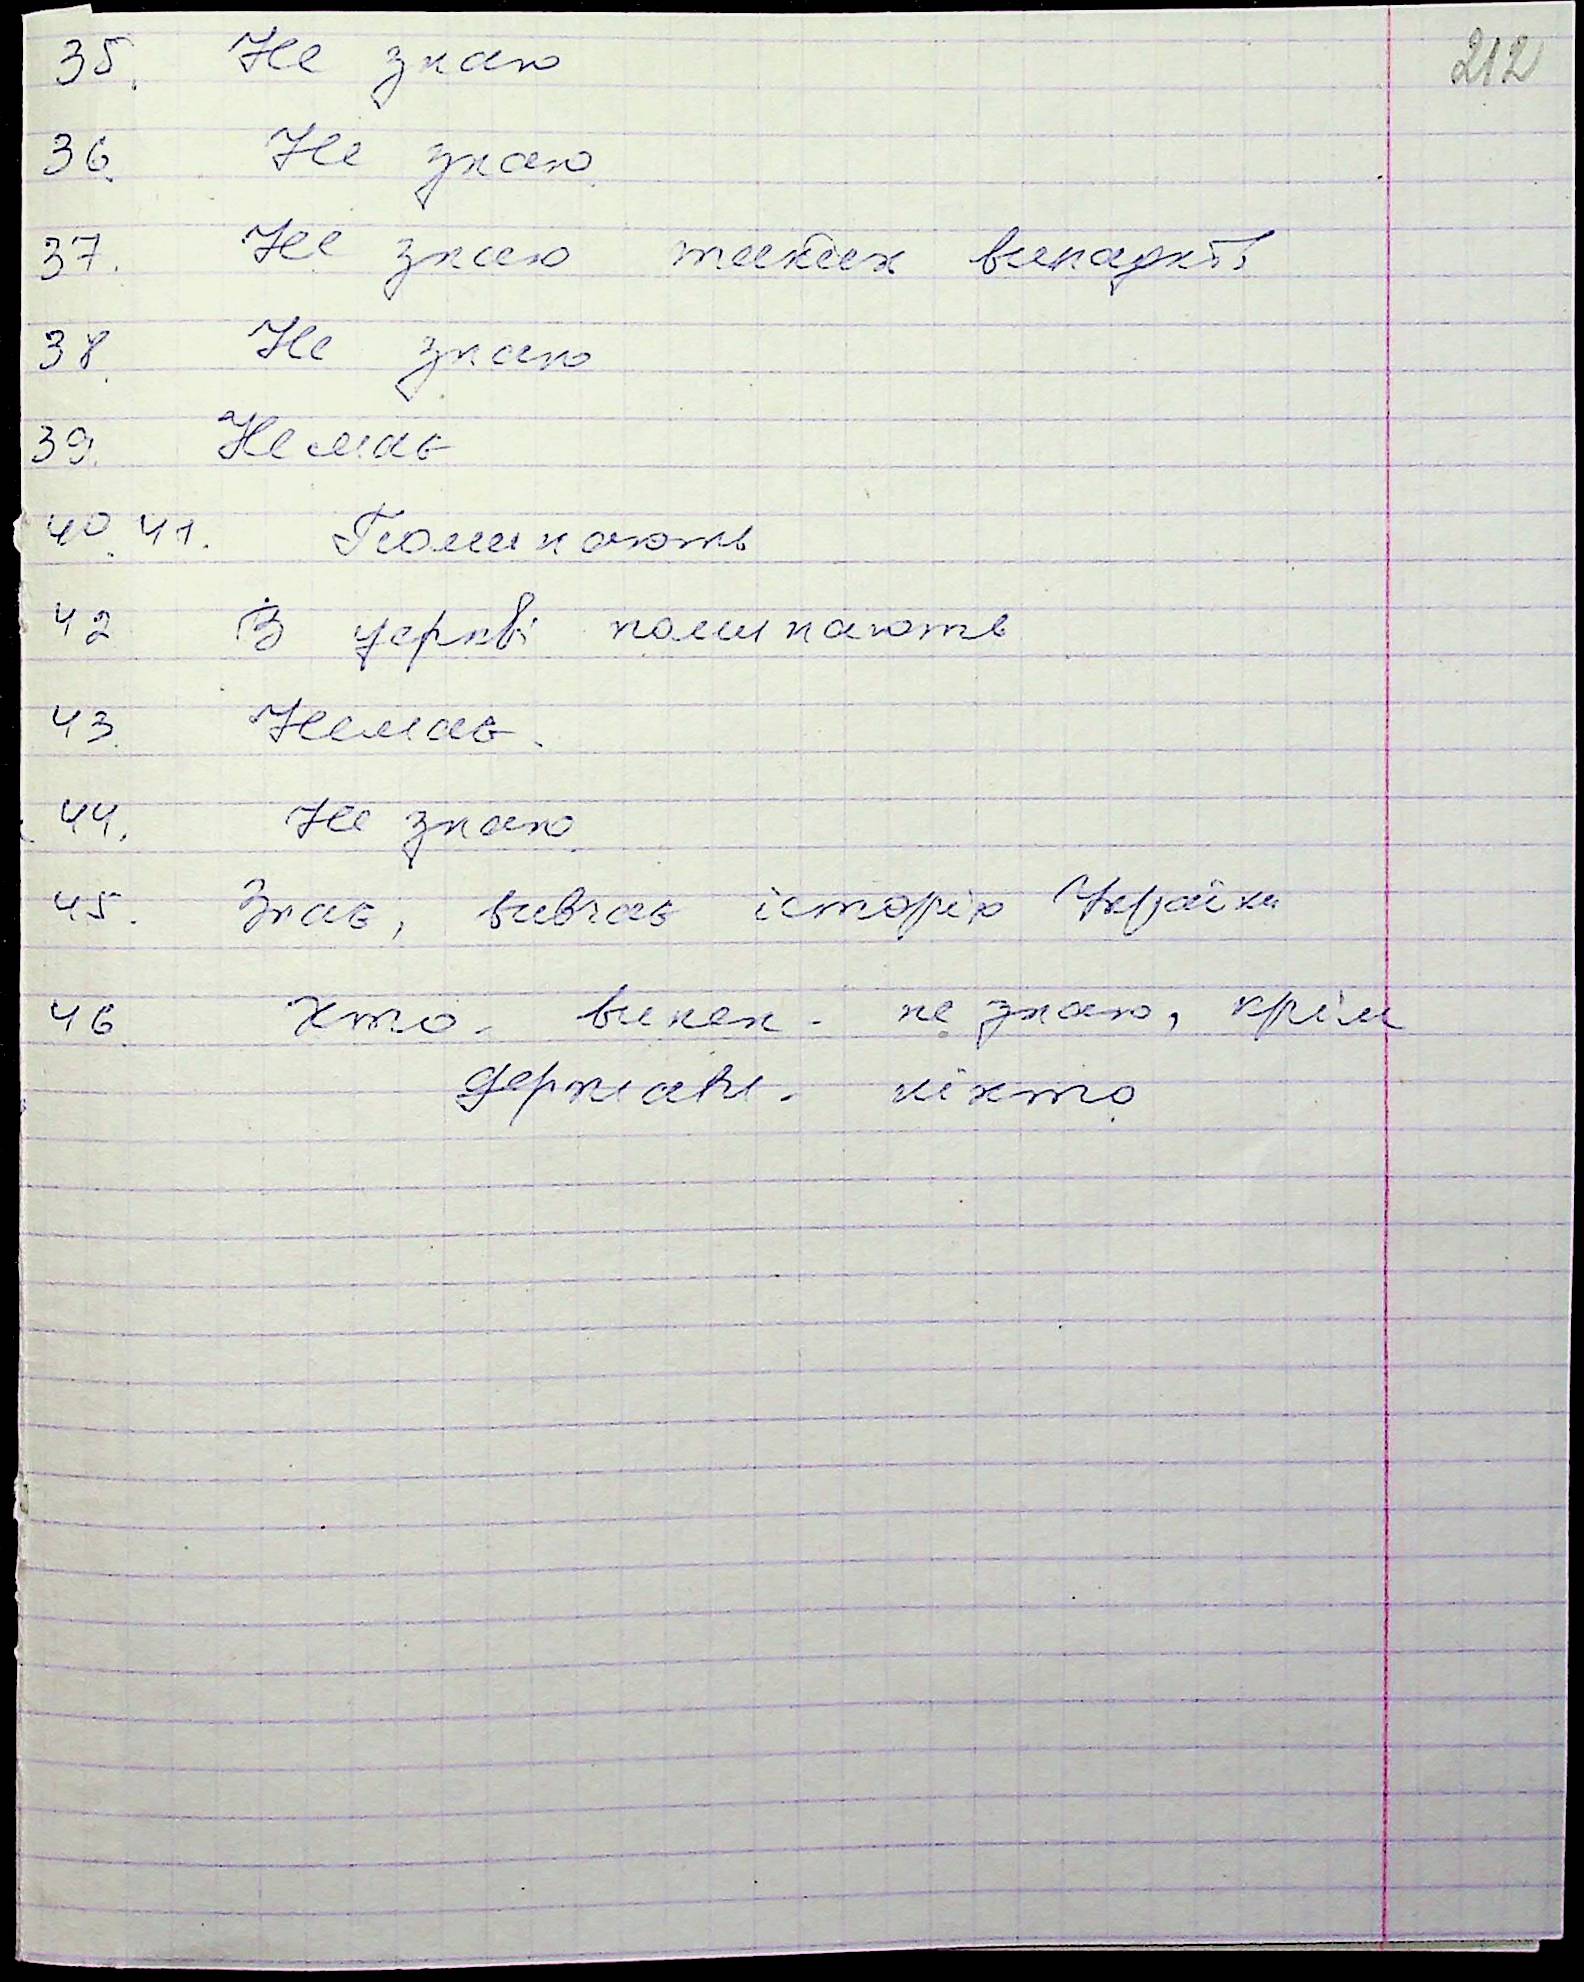 212
35. Не знаю
36. Не знаю.
37. Не знаю таких випадків
38. Не знаю
39. Немає
40. 41. Поминають
42 В церкві поминають
43. Немає.
44. Не знаю.
45. Знає, вивчає історію України
46. Хто - винен - не знаю, крім
держави - ніхто.